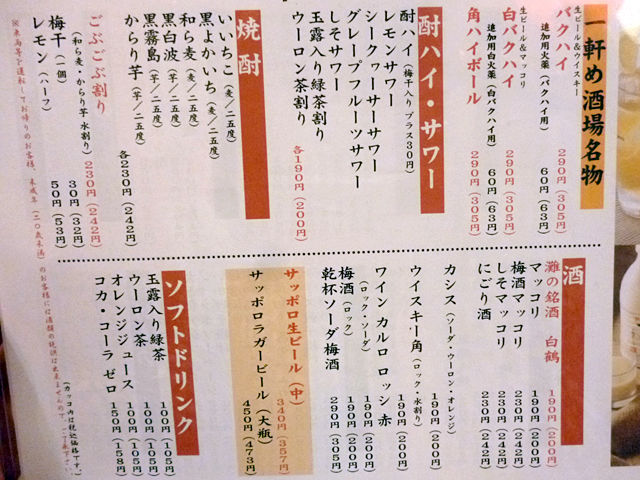 一軒め酒場名物
生ビール＆ウイスキー
バクハイ 290円(305円)
追加用火薬(バクハイ用) 60円(63円)
生ビール＆マッコリ
白バクハイ 290円(305円)
追加用白火薬(白バクハイ用) 60円(63円)
角ハイボール 290円(305円)
酎ハイ・サワー
酎ハイ(梅干入り プラス30円)
レモンサワー
シークヮーサーサワー
グレープフルーツサワー
しそサワー
玉露入り緑茶割り
ウーロン茶割り
各190円(200円)
焼酎
いいちこ(麦／二五度)
黒よかいち(麦／二五度)
和ら麦(麦／二五度)
黒白波(芋／二五度)
黒霧島(芋／二五度)
からり芋(芋／二五度)
各230円(242円)
ごぶごぶ割り 230円(242円)
(和ら麦・からり芋 水割り)
梅干(一個) 30円(32円)
レモン(ハーフ) 50円(53円)
酒
灘の銘酒 白鶴 190円(200円)
マッコリ 190円(200円)
梅酒マッコリ 230円(242円)
しそマッコリ 230円(242円)
にごり酒 230円(242円)
カシス(ソーダ・ウーロン・オレンジ) 190円(200円)
ウイスキー角(ロック・水割り) 190円(200円)
ワイン カルロ ロッシ 赤 190円(200円)
(ロック・ソーダ)
梅酒(ロック) 190円(200円)
乾杯ソーダ梅酒 290円(305円)
サッポロ生ビール(中) 340円(357円)
サッポロラガービール(大瓶) 450円(473円)
ソフトドリンク
玉露入り緑茶 100円(105円)
ウーロン茶 100円(105円)
オレンジジュース 100円(105円)
コカ・コーラ ゼロ 150円(158円)
(カッコ内は税込価格です。)